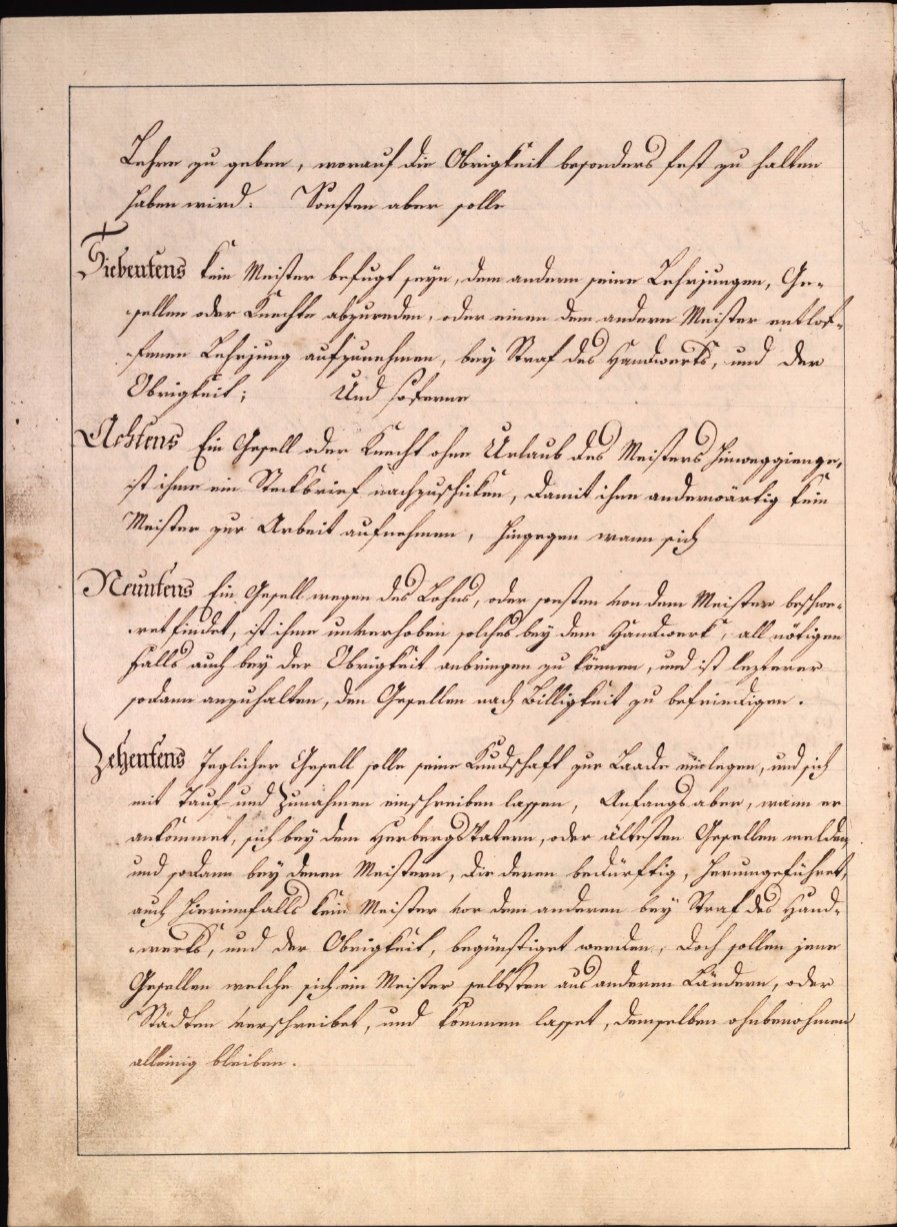 Lehre zu geben, worauf die Obrigkeit besonders fest zu halten
haben wird. Sonsten aber solle
Siebentens kein Meister befugt seyn, dem andern seine Lehrjungen, Ge-
sellen oder Knechte abzureden, oder einen dem andern Meister entlof-
fenen Lehrjung aufzunehmen, bey Straf des Handwerks, und der
Obrigkeit; Und soferne
Achtens Ein Gesell oder Knecht ohne Urlaub des Meisters hinweggienge,
ist ihme ein Steckbrief nachzuschicken, damit ihne anderwärtig kein
Meister zur Arbeit aufnehmen, hingegen wann sich
Neuntens Ein Gesell wegen des Lohns, oder sonsten von dem Meister beschwe-
ret findet, ist ihme unverhoben solches bey dem Handwerk, all nötigen
Falls auch bey der Obrigkeit anbringen zu können, und ist lezterer
sodann anzuhalten, den Gesellen nach Billigkeit zu befriedigen.
Zehentens Jeglicher Gesell solle seine Kundschaft zur Laade einlegen, und sich
mit Tauf- und Zunahmen einschreiben lassen, Anfangs aber, wann er
ankommet, sich bey dem Herbergsvatern, oder ältesten Gesellen melden,
und sodann bey denen Meistern, die deren bedürftig, herumgeführet,
auch hierinnfalls kein Meister vor dem anderen bey Straf des Hand-
werks, und der Obrigkeit, begünstiget werden, doch sollen jene
Gesellen welche sich ein Meister selbsten aus anderen Ländern, oder
Städten verschreibet, und kommen lasset, demselben ohnbenohmen
alleinig bleiben.